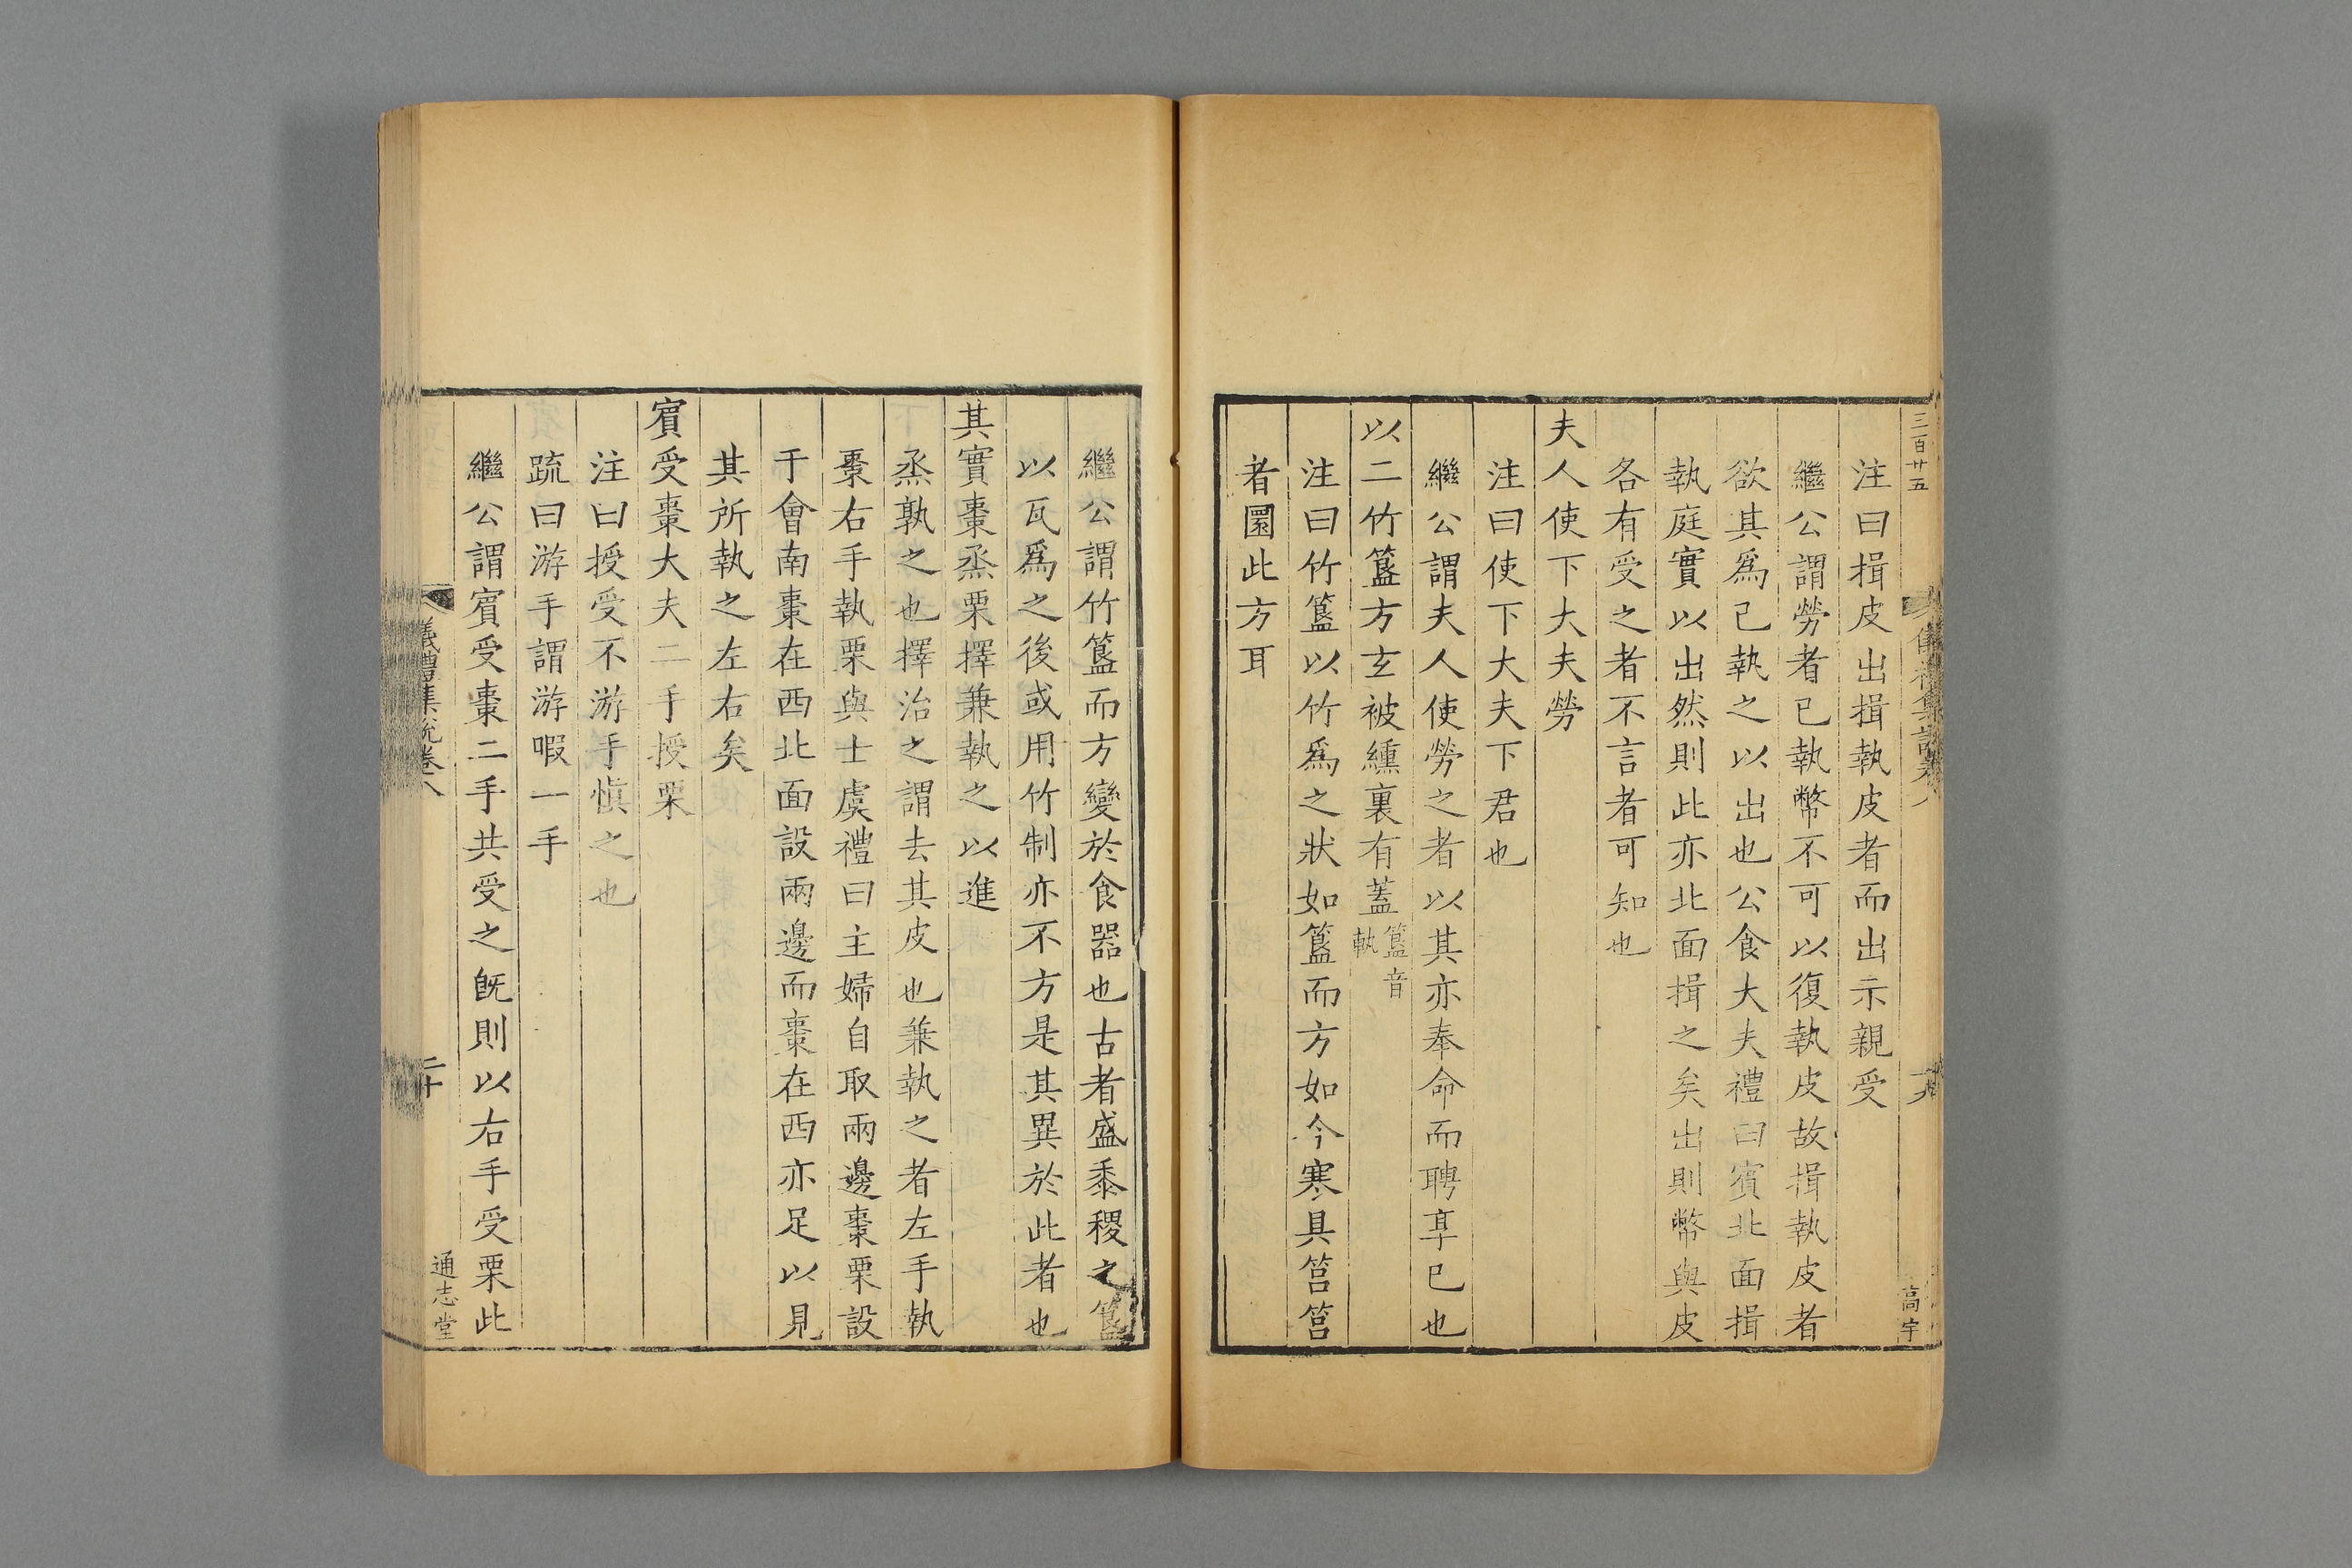 三百廿五
高宇
注曰揖皮出揖執皮者而出示親受
繼公謂勞者已執幣不可以復執皮故揖執皮者
欲其爲已執之以出也公食大夫禮曰賓北面揖
執庭實以出然則此亦北面揖之矣出則幣與皮
各有受之者不言者可知也
夫人使下大夫勞
注曰使下大夫下君也
繼公謂夫人使勞之者以其亦奉命而聘享已也
以二竹簋方玄被纁裏有蓋簋音軌
注曰竹簋以竹爲之狀如簋而方如今寒具筥筥
者圜此方耳
繼公謂竹簋而方變於食器也古者盛黍稷之簋
以瓦爲之後或用竹制亦不方是其異於此者也
其實棗烝栗擇兼執之以進
烝孰之也擇治之謂去其皮也兼執之者左手執
棗右手執栗與士虞禮曰主婦自取兩籩棗栗設
于會南棗在西北面設兩籩而棗在西亦足以見
其所執之左右矣
賓受棗大夫二手授栗
注曰授受不游手愼之也
疏曰游手謂游暇一手
繼公謂賓受棗二手共受之旣則以右手受栗此
儀禮集說卷八
二十
通志堂